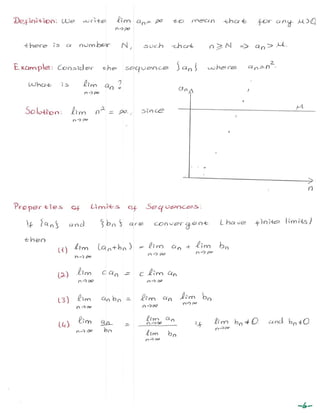 Definition: We write lim an = ∞ to mean that for any M>0
n→∞
there is a number N, such that n ≥ N => an > M.
Example: Consider the sequence {an} where an=n².
What is lim an?
n→∞
an
Solution: lim n² = ∞, since
n→∞
M
n
Properties of Limits of Sequences:
If {an} and {bn} are convergent (have finite limits)
then
(1) lim (an+bn) = lim an + lim bn
n→∞ n→∞ n→∞
(2) lim can = c lim an
n→∞ n→∞
(3) lim anbn = lim an lim bn
n→∞ n→∞ n→∞
(4) lim an/bn = lim an / lim bn if lim bn ≠ 0 and bn ≠ 0
n→∞ n→∞ n→∞ n→∞
-6-